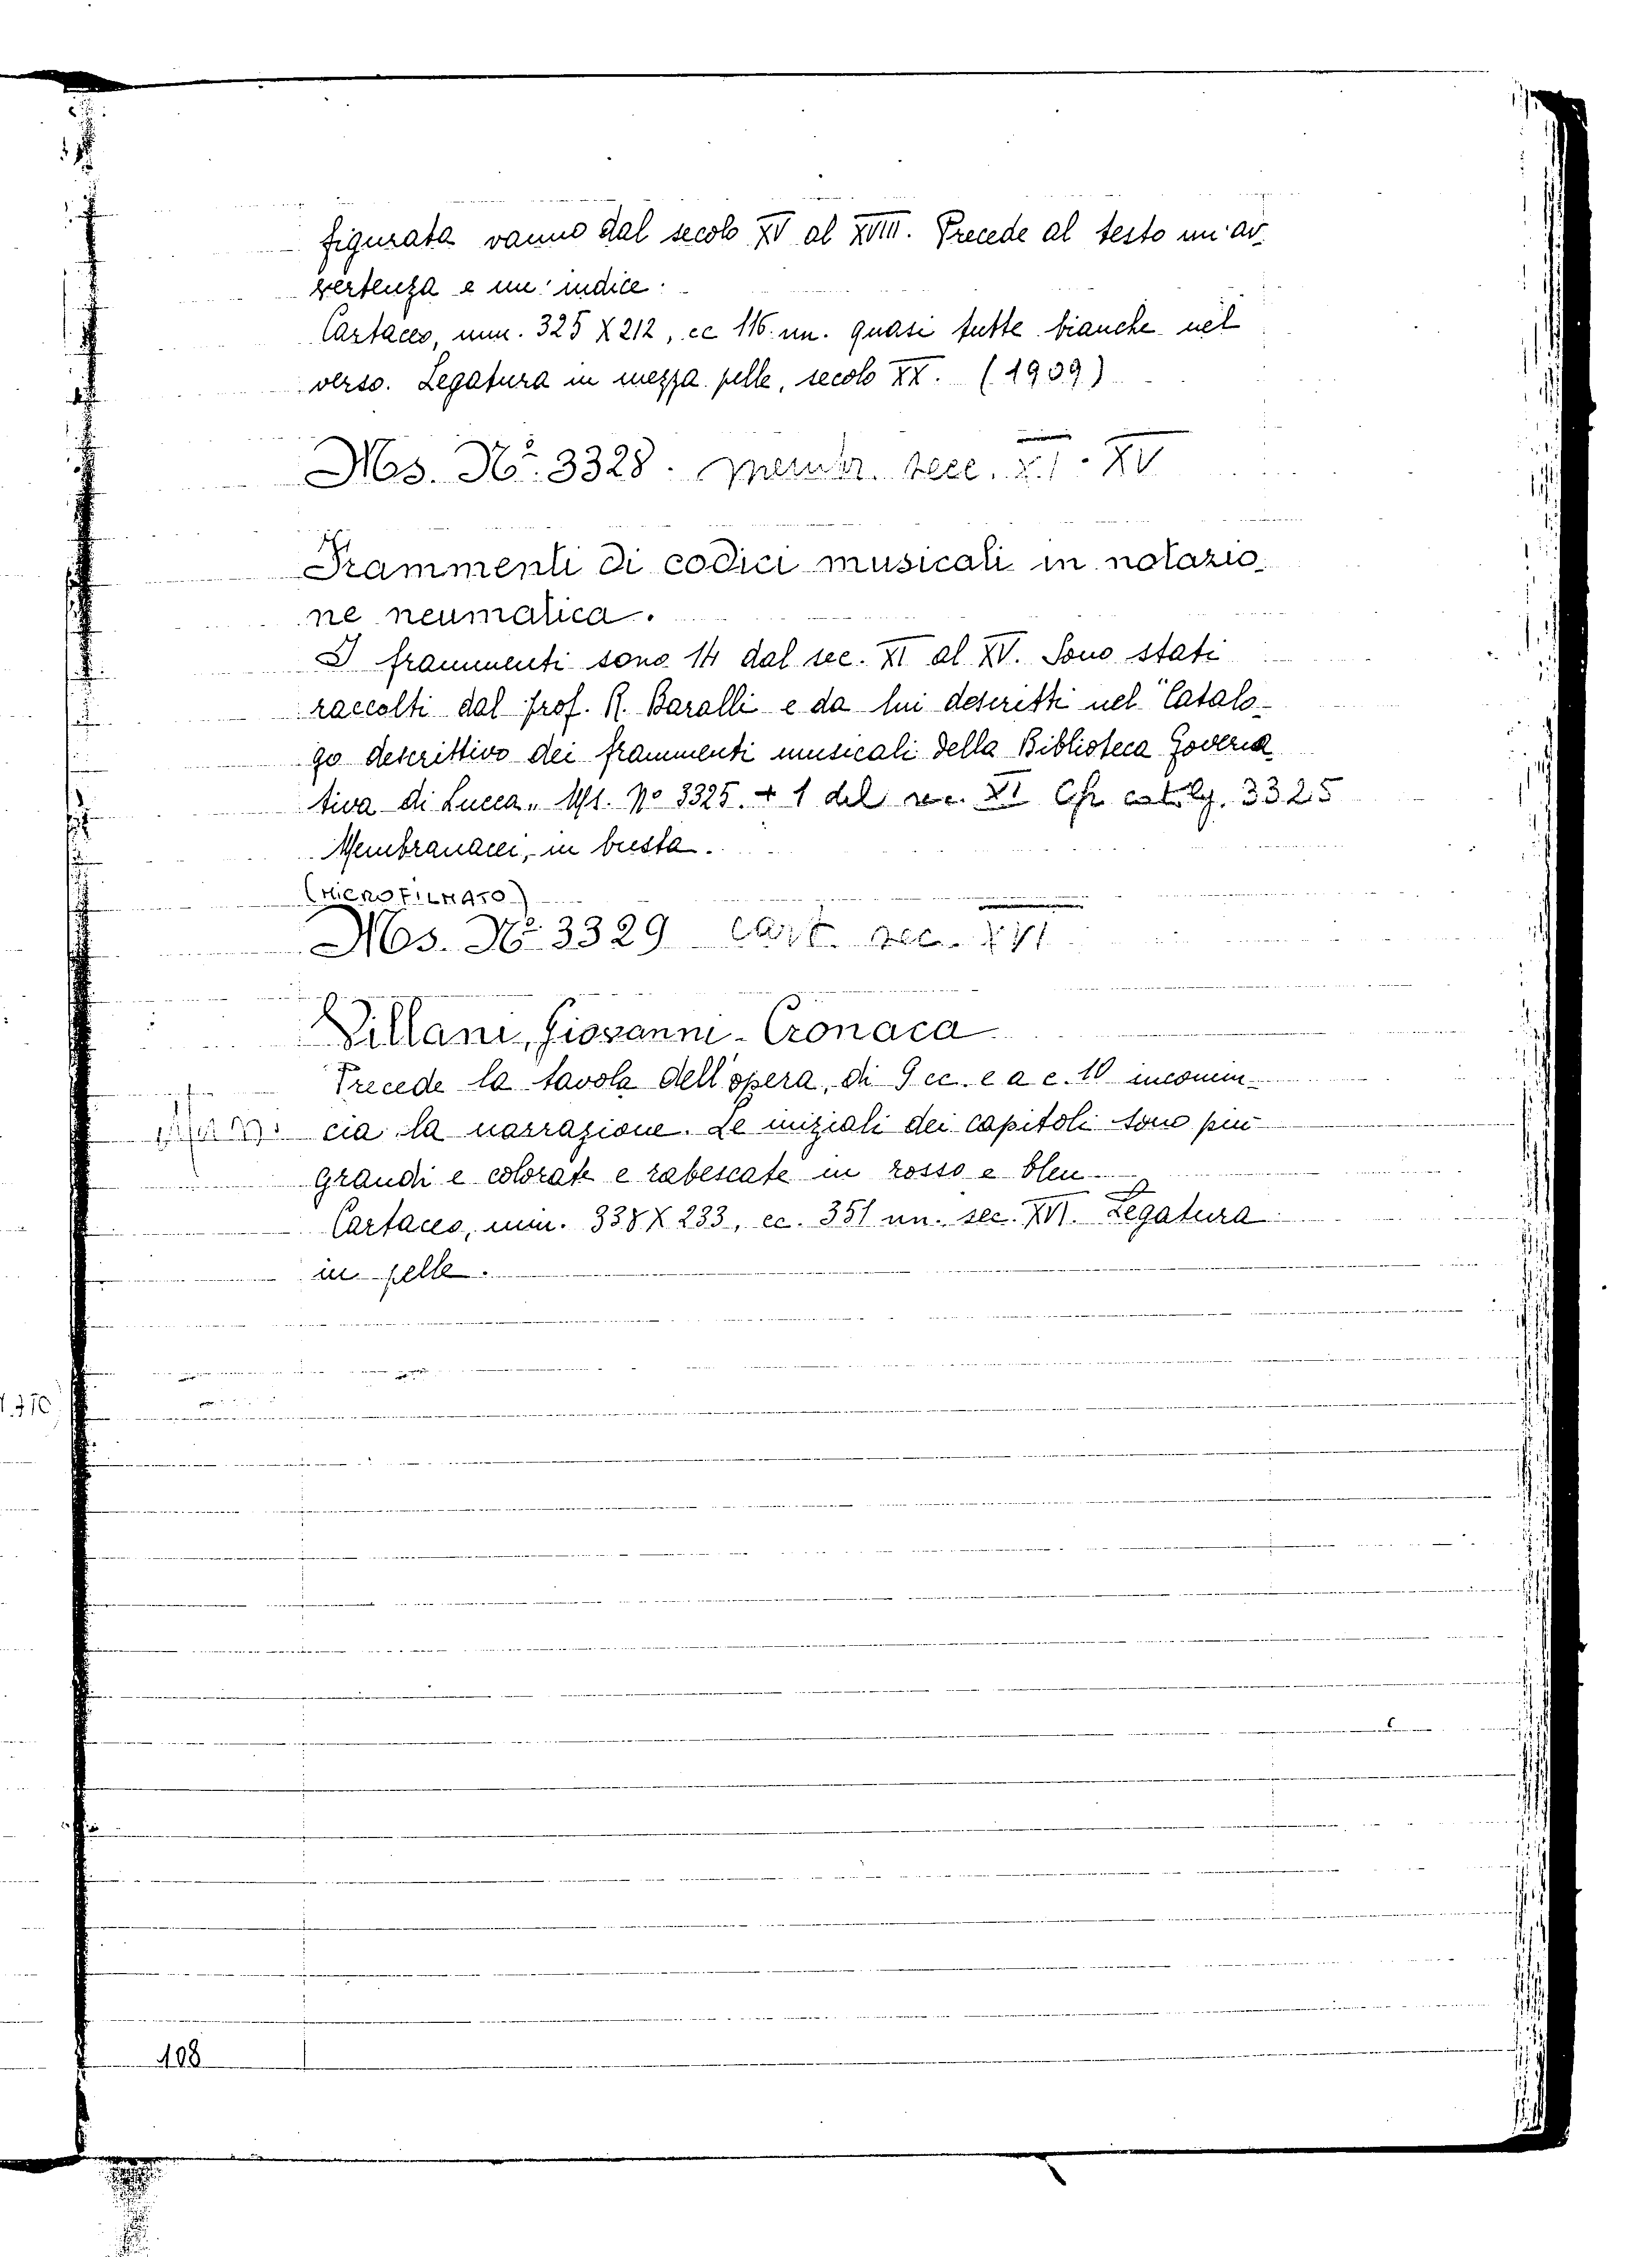 figurata vanno dal secolo XV al XVIII. Precede al testo un'av-
vertenza e un' indice.
Cartaceo, mm. 325 X 212, cc 116 nn. quasi tutte bianche nel
verso. Legatura in mezza pelle, secolo XX. (1909)
Ms. Nº. 3328. membr. secc. XI-XV
Frammenti di codici musicali in notazio-
ne neumatica.
I frammenti sono 14 dal sec. XI al XV. Sono stati
raccolti dal prof. R. Baralli e da lui descritti nel "Catalo-
go descrittivo dei frammenti musicali della Biblioteca Governa
tiva di Lucca" Ms. Nº 3325. + 1 del sec. XI Cfr catalg. 3325
Membranacei, in busta.
(MICROFILMATO)
Ms. Nº 3329 cart. sec. XVI
Villani, Giovanni - Cronaca
Precede la tavola dell'opera, di 9 cc. e a c. 10 incomin-
cia la narrazione. Le iniziali dei capitoli sono più
grandi e colorate e rabescate in rosso e bleu
Cartaceo, mm. 338 X 233, cc. 351 nn. sec. XVI. Legatura
in pelle.
108